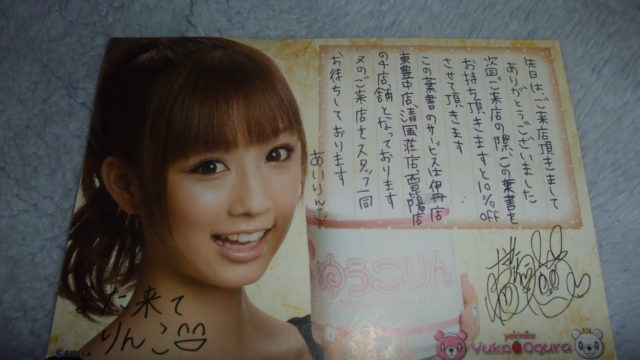 先日は、ご来店頂きまして
ありがとうございました
次回ご来店の際、この葉書を
お持ち頂きますと10%OFF
させて頂きます
この葉書のサービスは伊丹店
東豊中店、清風荘店、昆陽店
の4店舗となっております
又のご来店をスタッフ一同
お待ちしております
また来て
りんこ
ゆうこりん
yakiniku
Yuko Ogura